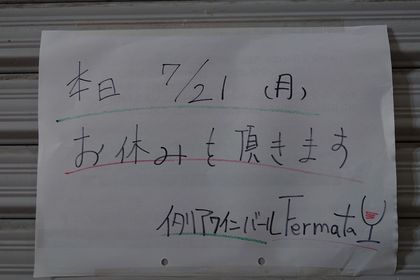 本日 7/21 (月)
お休みを頂きます
イタリアワインバール Fermata